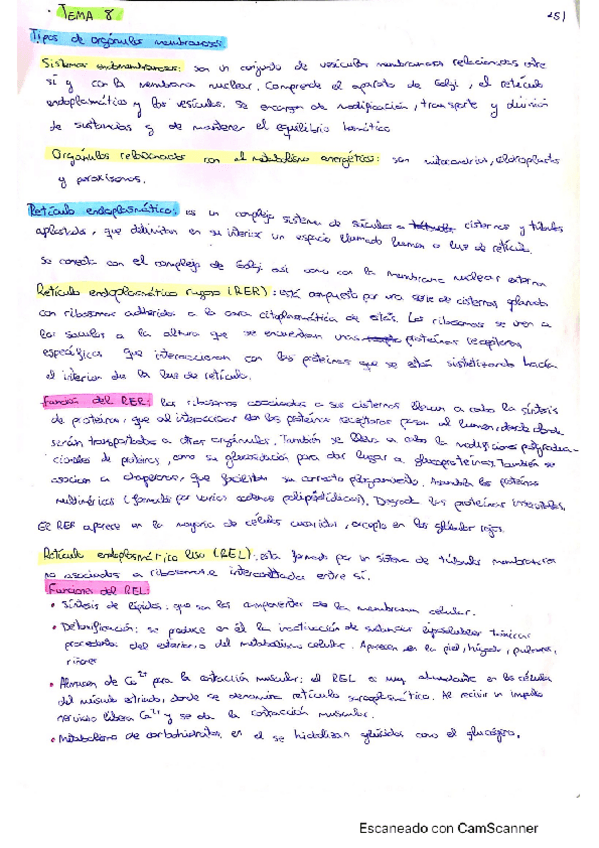 · TEMA 8
251
Tipos de orgánulos membranosos:
Sistemas endomembranosos: son un conjunto de vesículas membranosas relacionadas entre
sí y con la membrana nuclear. Comprende el aparato de Golgi, el retículo
endoplasmático y las vesículas. Se encargan de modificación, transporte y división
de sustancias y de mantener el equilibrio
Orgánulos relacionados con el metabolismo energético: son mitocondrias, cloroplastos
y peroxisomas.
Retículo endoplasmático: es un complejo sistema de sáculos o cisternas y túbulos
aplastados, que delimitan en su interior un espacio llamado lumen o luz de retículo.
Se conecta con el complejo de Golgi así como con la membrana nuclear externa
Retículo endoplasmático rugoso (RER): está compuesto por una serie de cisternas
con ribosomas adheridos a la cara citoplasmática de éstas. Los ribosomas se ven a
los sáculos a la altura que se encuentran unas proteínas receptoras
específicas que interaccionan con las proteínas que se están sintetizando hacia
el interior de la luz de retículo.
Función del RER: los ribosomas asociados a sus cisternas llevan a cabo la síntesis
de proteínas, que al interaccionar con las proteínas receptoras pasan al lumen, desde donde
serán transportadas a otros orgánulos. También se lleva a cabo la
de proteínas, como su glucosidación para dar lugar a glucoproteínas. También se
asocian a chaperonas, que facilitan su correcto plegamiento. Ensambla las proteínas
multiméricas (formadas por varias cadenas polipeptídicas). Degrada las proteínas inservibles.
El RER aparece en la mayoría de células eucariotas, excepto en los glóbulos rojos.
Retículo endoplasmático liso (REL): está formado por un sistema de túbulos membranosos
no asociados a ribosomas e interconectados entre sí.
Funciones del REL:
• Síntesis de lípidos: que son los componentes de la membrana celular.
• Detoxificación: se produce en él la inactivación de sustancias liposolubles tóxicas
procedentes del exterior o del metabolismo celular. Aparece en la piel, hígado, pulmones,
riñones
• Almacén de Ca²⁺ para la contracción muscular: el REL es muy abundante en las células
del músculo estriado, donde se denomina retículo sarcoplasmático. Al recibir un impulso
nervioso libera Ca²⁺ y se da la contracción muscular.
• Metabolismo de carbohidratos, en él se hidrolizan glúcidos como el glucógeno.
Escaneado con CamScanner